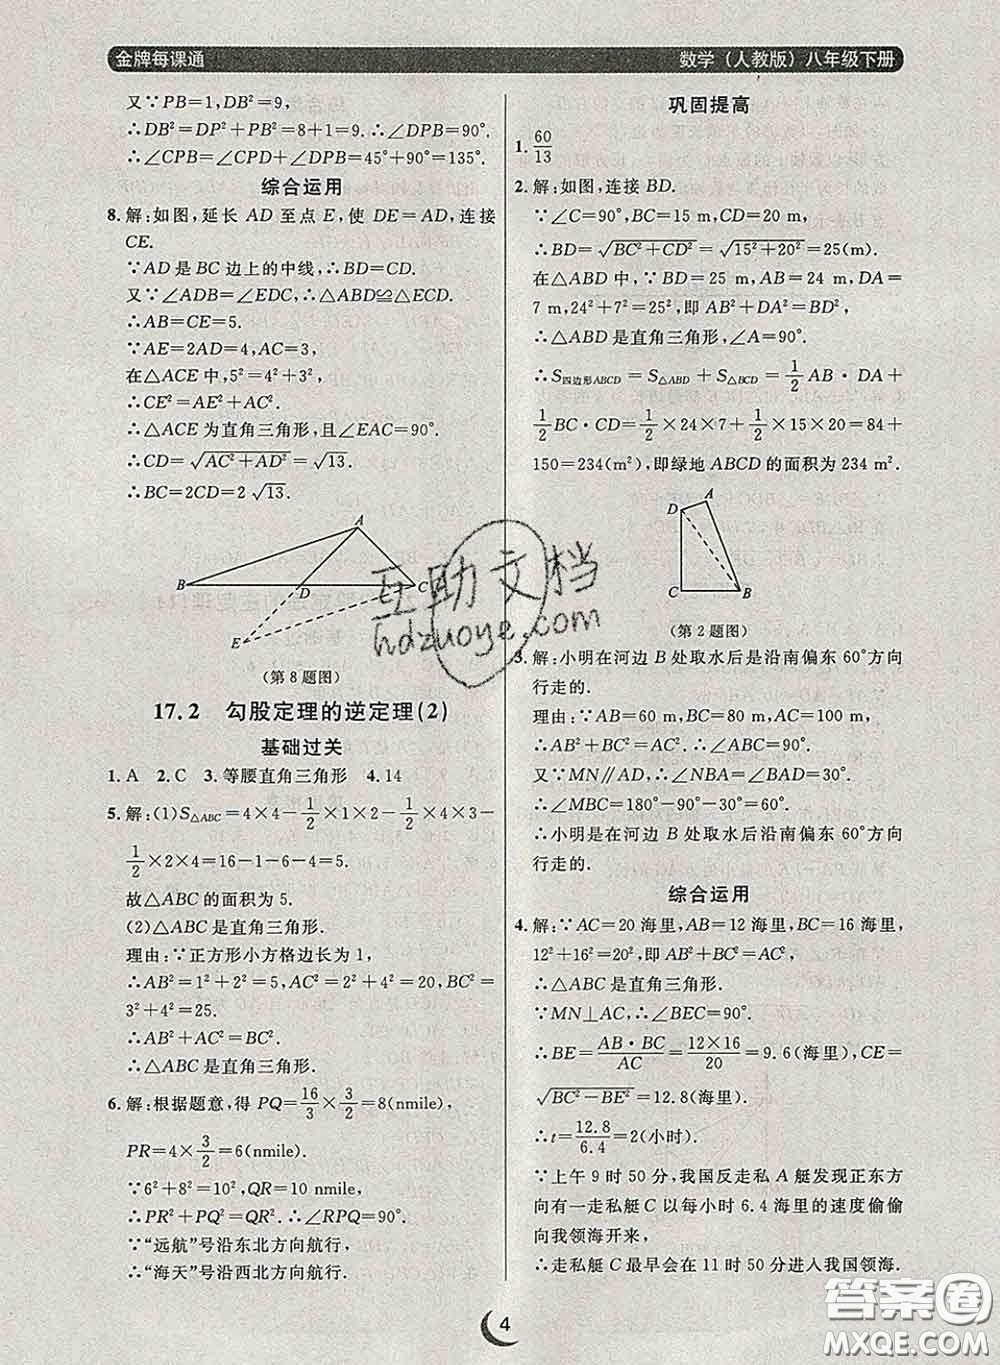 金牌每课通
数学（人教版）八年级下册
又∵PB=1,DB²=9,
∴DB²=DP²+PB²=8+1=9.∴∠DPB=90°.
∴∠CPB=∠CPD+∠DPB=45°+90°=135°.
综合运用
8.解:如图,延长 AD 至点 E,使 DE=AD,连接
CE.
∵AD 是 BC 边上的中线,∴BD=CD.
又∵∠ADB=∠EDC,∴△ABD≌△ECD.
∴AB=CE=5.
∵AE=2AD=4,AC=3,
在△ACE 中,5²=4²+3²,
∴CE²=AE²+AC².
∴△ACE 为直角三角形,且∠EAC=90°.
∴CD=√(AC²+AD²)=√13.
∴BC=2CD=2√13.
A
B
D
C
E
(第 8 题图)
17.2 勾股定理的逆定理(2)
基础过关
1.A 2.C 3.等腰直角三角形 4.14
5.解:(1)S△ABC=4×4-1/2×1×2-1/2×4×3-
1/2×2×4=16-1-6-4=5.
故△ABC 的面积为 5.
(2)△ABC 是直角三角形.
理由:∵正方形小方格边长为 1,
∴AB²=1²+2²=5,AC²=2²+4²=20,BC²=
3²+4²=25.
∴AB²+AC²=BC².
∴△ABC 是直角三角形.
6.解:根据题意,得 PQ=16/3×3/2=8(nmile),
PR=4×3/2=6(nmile),
∵6²+8²=10²,QR=10 nmile,
∴PR²+PQ²=QR².∴∠RPQ=90°.
∵“远航”号沿东北方向航行,
∴“海天”号沿西北方向航行.
巩固提高
1. 60/13
2.解:如图,连接 BD.
∵∠C=90°,BC=15 m,CD=20 m,
∴BD=√(BC²+CD²)=√(15²+20²)=25(m).
在△ABD 中,∵BD=25 m,AB=24 m,DA=
7 m,24²+7²=25²,即 AB²+DA²=BD²,
∴△ABD 是直角三角形,∠A=90°.
∴S四边形ABCD=S△ABD+S△BCD=1/2 AB·DA+
1/2 BC·CD=1/2×24×7+1/2×15×20=84+
150=234(m²),即绿地 ABCD 的面积为 234 m².
A
D
C
B
(第 2 题图)
3.解:小明在河边 B 处取水后是沿南偏东 60°方向
行走的.
理由:∵AB=60 m,BC=80 m,AC=100 m,
∴AB²+BC²=AC².∴∠ABC=90°.
又∵MN∥AD,∴∠NBA=∠BAD=30°.
∴∠MBC=180°-90°-30°=60°.
∴小明是在河边 B 处取水后沿南偏东 60°方向
行走的.
综合运用
4.解:∵AC=20 海里,AB=12 海里,BC=16 海里,
12²+16²=20²,即 AB²+BC²=AC²,
∴△ABC 是直角三角形.
∵MN⊥AC,∴∠BEC=90°.
∴BE=AB·BC/AC=12×16/20=9.6(海里),CE=
√(BC²-BE²)=12.8(海里).
∴t=12.8/6.4=2(小时).
∵上午 9 时 50 分,我国反走私 A 艇发现正东方
向有一走私艇 C 以每小时 6.4 海里的速度偷偷
向我领海开来,
∴走私艇 C 最早会在 11 时 50 分进入我国领海.
4
互助文档
hdzuoye.com
答案圈
MXQE.COM